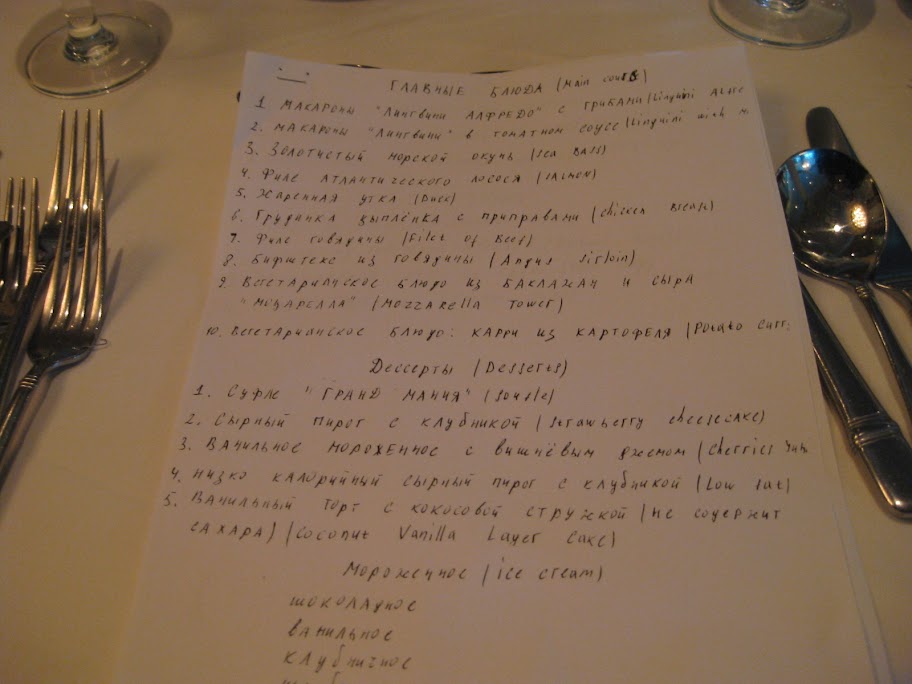 ГЛАВНЫЕ БЛЮДА (Main course)
1 МАКАРОНЫ "ЛИНГВИНИ АЛФРЕДО" С ГРИБАМИ (Linguini
2. МАКАРОНЫ "ЛИНГВИНИ" В ТОМАТНОМ СОУСЕ (Linguini with
3. ЗОЛОТИСТЫЙ МОРСКОЙ ОКУНЬ (Sea BASS)
4. ФИЛЕ АТЛАНТИЧЕСКОГО ЛОСОСЯ (SALMON)
5. ЖАРЕННАЯ УТКА (Duck)
6. ГРУДИНКА ЦЫПЛЁНКА С ПРИПРАВАМИ (Chicken Breast)
7. ФИЛЕ ГОВЯДИНЫ (Filet of Beef)
8. БИФШТЕКС ИЗ ГОВЯДИНЫ (Angus Sirloin)
9. ВЕГЕТАРИАНСКОЕ БЛЮДО ИЗ БАКЛАЖАН И СЫРА
"МОЦАРЕЛЛА" (Mozzarella Tower)
10. ВЕГЕТАРИАНСКОЕ БЛЮДО: КАРРИ ИЗ КАРТОФЕЛЯ (Potato
Дессерты (Desserts)
1. СУФЛЕ "ГРАНД МАНИЯ" (Soufle)
2. СЫРНЫЙ ПИРОГ С КЛУБНИКОЙ (Strawberry cheesecake)
3. ВАНИЛЬНОЕ МОРОЖЕННОЕ С ВИШНЁВЫМ ДЖЕМОМ (Cherries
4. НИЗКО КАЛОРИЙНЫЙ СЫРНЫЙ ПИРОГ С КЛУБНИКОЙ (Low fat)
5. ВАНИЛЬНЫЙ ТОРТ С КОКОСОВОЙ СТРУЖКОЙ (НЕ СОДЕРЖИТ
САХАРА) (Coconut Vanilla Layer Cake)
Мороженное (ice cream)
ШОКОЛАДНОЕ
ВАНИЛЬНОЕ
КЛУБНИЧНОЕ